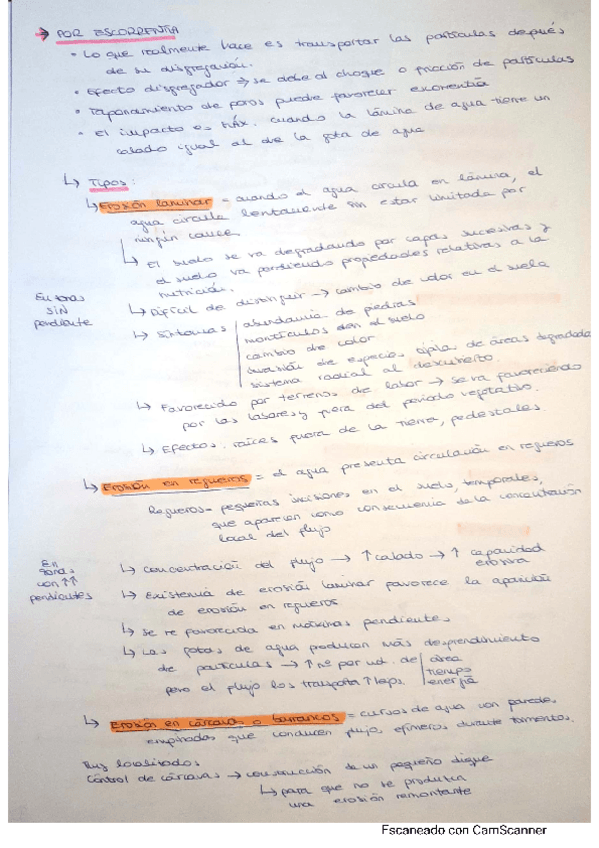 → POR ESCORRENTÍA
• Lo que realmente hace es transportar las partículas depués
de su disgregación.
• Efecto disgregador ⇒ se debe al choque o fricción de partículas
• Taponamiento de poros puede favorecer escorrentía
• El impacto es MÁX. cuando la lámina de agua tiene un
calado igual al de la gota de agua
↳ Tipos:
↳ Erosión laminar = cuando el agua circula en lámina, el
agua circula lentamente sin estar limitada por
ningún cauce
↳ El suelo se va degradando por capas sucesivas y
el suelo va perdiendo propiedades relativas a la
nutrición.
En zonas
SIN
pendiente
↳ Difícil de distinguir → cambio de color en el suelo
↳ Síntomas | abundancia de piedras
montículos en el suelo
cambio de color
invasión de especies de áreas degradadas
sistema radial al descubierto.
↳ Favorecido por terrenos de labor → se va favoreciendo
por las labores y fuera del periodo vegetativo.
↳ Efectos: raíces fuera de la tierra, pedestales.
↳ Erosión en regueros = el agua presenta circulación en regueros
Regueros = pequeñas incisiones en el suelo, temporales,
que aparecen como consecuencia de la concentración
local del flujo
En
zonas
con ↑↑
pendientes
↳ Concentración del flujo → ↑ calado → ↑ capacidad
erosiva
↳ Existencia de erosión laminar favorece la aparición
de erosión en regueros.
↳ Se ve favorecida en máximas pendiente.
↳ Las gotas de agua producen más desprendimiento
de partículas → ↑ nº por ud. de | área
tiempo
energía
pero el flujo los transporta ↑ lejos.
↳ Erosión en cárcavas o barrancos = cursos de agua con paredes
empinadas que conducen flujos efímeros durante tormentas.
Muy localizados
Control de cárcavas → construcción de un pequeño dique
↳ para que no se produzca
una erosión remontante
Escaneado con CamScanner